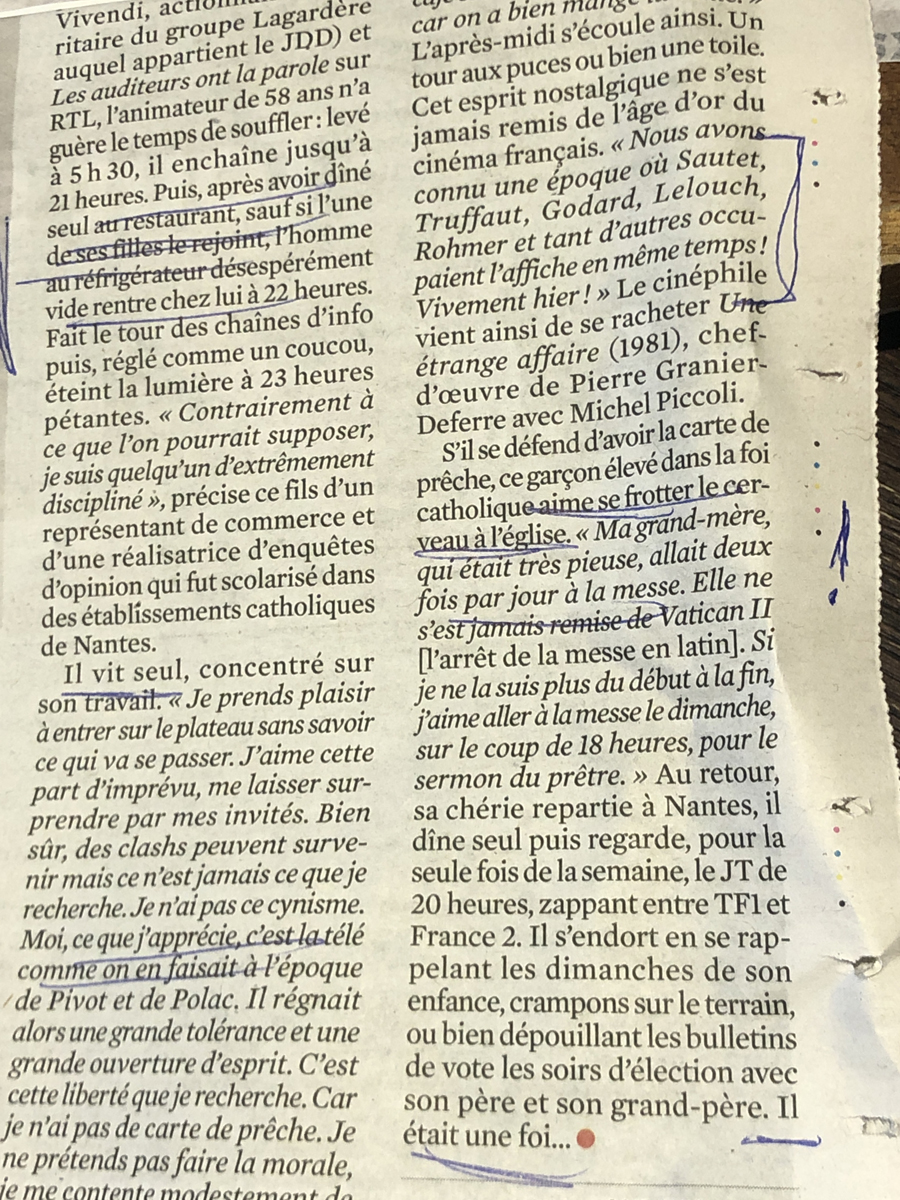 Vivendi,
ritaire du groupe Lagardère
auquel appartient le JDD) et
Les auditeurs ont la parole sur
RTL, l'animateur de 58 ans n'a
guère le temps de souffler : levé
à 5 h 30, il enchaîne jusqu'à
21 heures. Puis, après avoir dîné
seul au restaurant, sauf si l'une
de ses filles le rejoint, l'homme
au réfrigérateur désespérément
vide rentre chez lui à 22 heures.
Fait le tour des chaînes d'info
puis, réglé comme un coucou,
éteint la lumière à 23 heures
pétantes. « Contrairement à
ce que l'on pourrait supposer,
je suis quelqu'un d'extrêmement
discipliné », précise ce fils d'un
représentant de commerce et
d'une réalisatrice d'enquêtes
d'opinion qui fut scolarisé dans
des établissements catholiques
de Nantes.
Il vit seul, concentré sur
son travail. « Je prends plaisir
à entrer sur le plateau sans savoir
ce qui va se passer. J'aime cette
part d'imprévu, me laisser sur-
prendre par mes invités. Bien
sûr, des clashs peuvent surve-
nir mais ce n'est jamais ce que je
recherche. Je n'ai pas ce cynisme.
Moi, ce que j'apprécie, c'est la télé
comme on en faisait à l'époque
de Pivot et de Polac. Il régnait
alors une grande tolérance et une
grande ouverture d'esprit. C'est
cette liberté que je recherche. Car
je n'ai pas de carte de prêche. Je
ne prétends pas faire la morale,
je me contente modestement de
car on a bien mangé
L'après-midi s'écoule ainsi. Un
tour aux puces ou bien une toile.
Cet esprit nostalgique ne s'est
jamais remis de l'âge d'or du
cinéma français. « Nous avons
connu une époque où Sautet,
Truffaut, Godard, Lelouch,
Rohmer et tant d'autres occu-
paient l'affiche en même temps !
Vivement hier ! » Le cinéphile
vient ainsi de se racheter Une
étrange affaire (1981), chef-
d'œuvre de Pierre Granier-
Deferre avec Michel Piccoli.
S'il se défend d'avoir la carte de
prêche, ce garçon élevé dans la foi
catholique aime se frotter le cer-
veau à l'église. « Ma grand-mère,
qui était très pieuse, allait deux
fois par jour à la messe. Elle ne
s'est jamais remise de Vatican II
[l'arrêt de la messe en latin]. Si
je ne la suis plus du début à la fin,
j'aime aller à la messe le dimanche,
sur le coup de 18 heures, pour le
sermon du prêtre. » Au retour,
sa chérie repartie à Nantes, il
dîne seul puis regarde, pour la
seule fois de la semaine, le JT de
20 heures, zappant entre TF1 et
France 2. Il s'endort en se rap-
pelant les dimanches de son
enfance, crampons sur le terrain,
ou bien dépouillant les bulletins
de vote les soirs d'élection avec
son père et son grand-père. Il
était une foi...